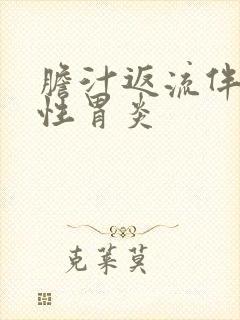 胆汁返流伴
性胃炎
克莱莫